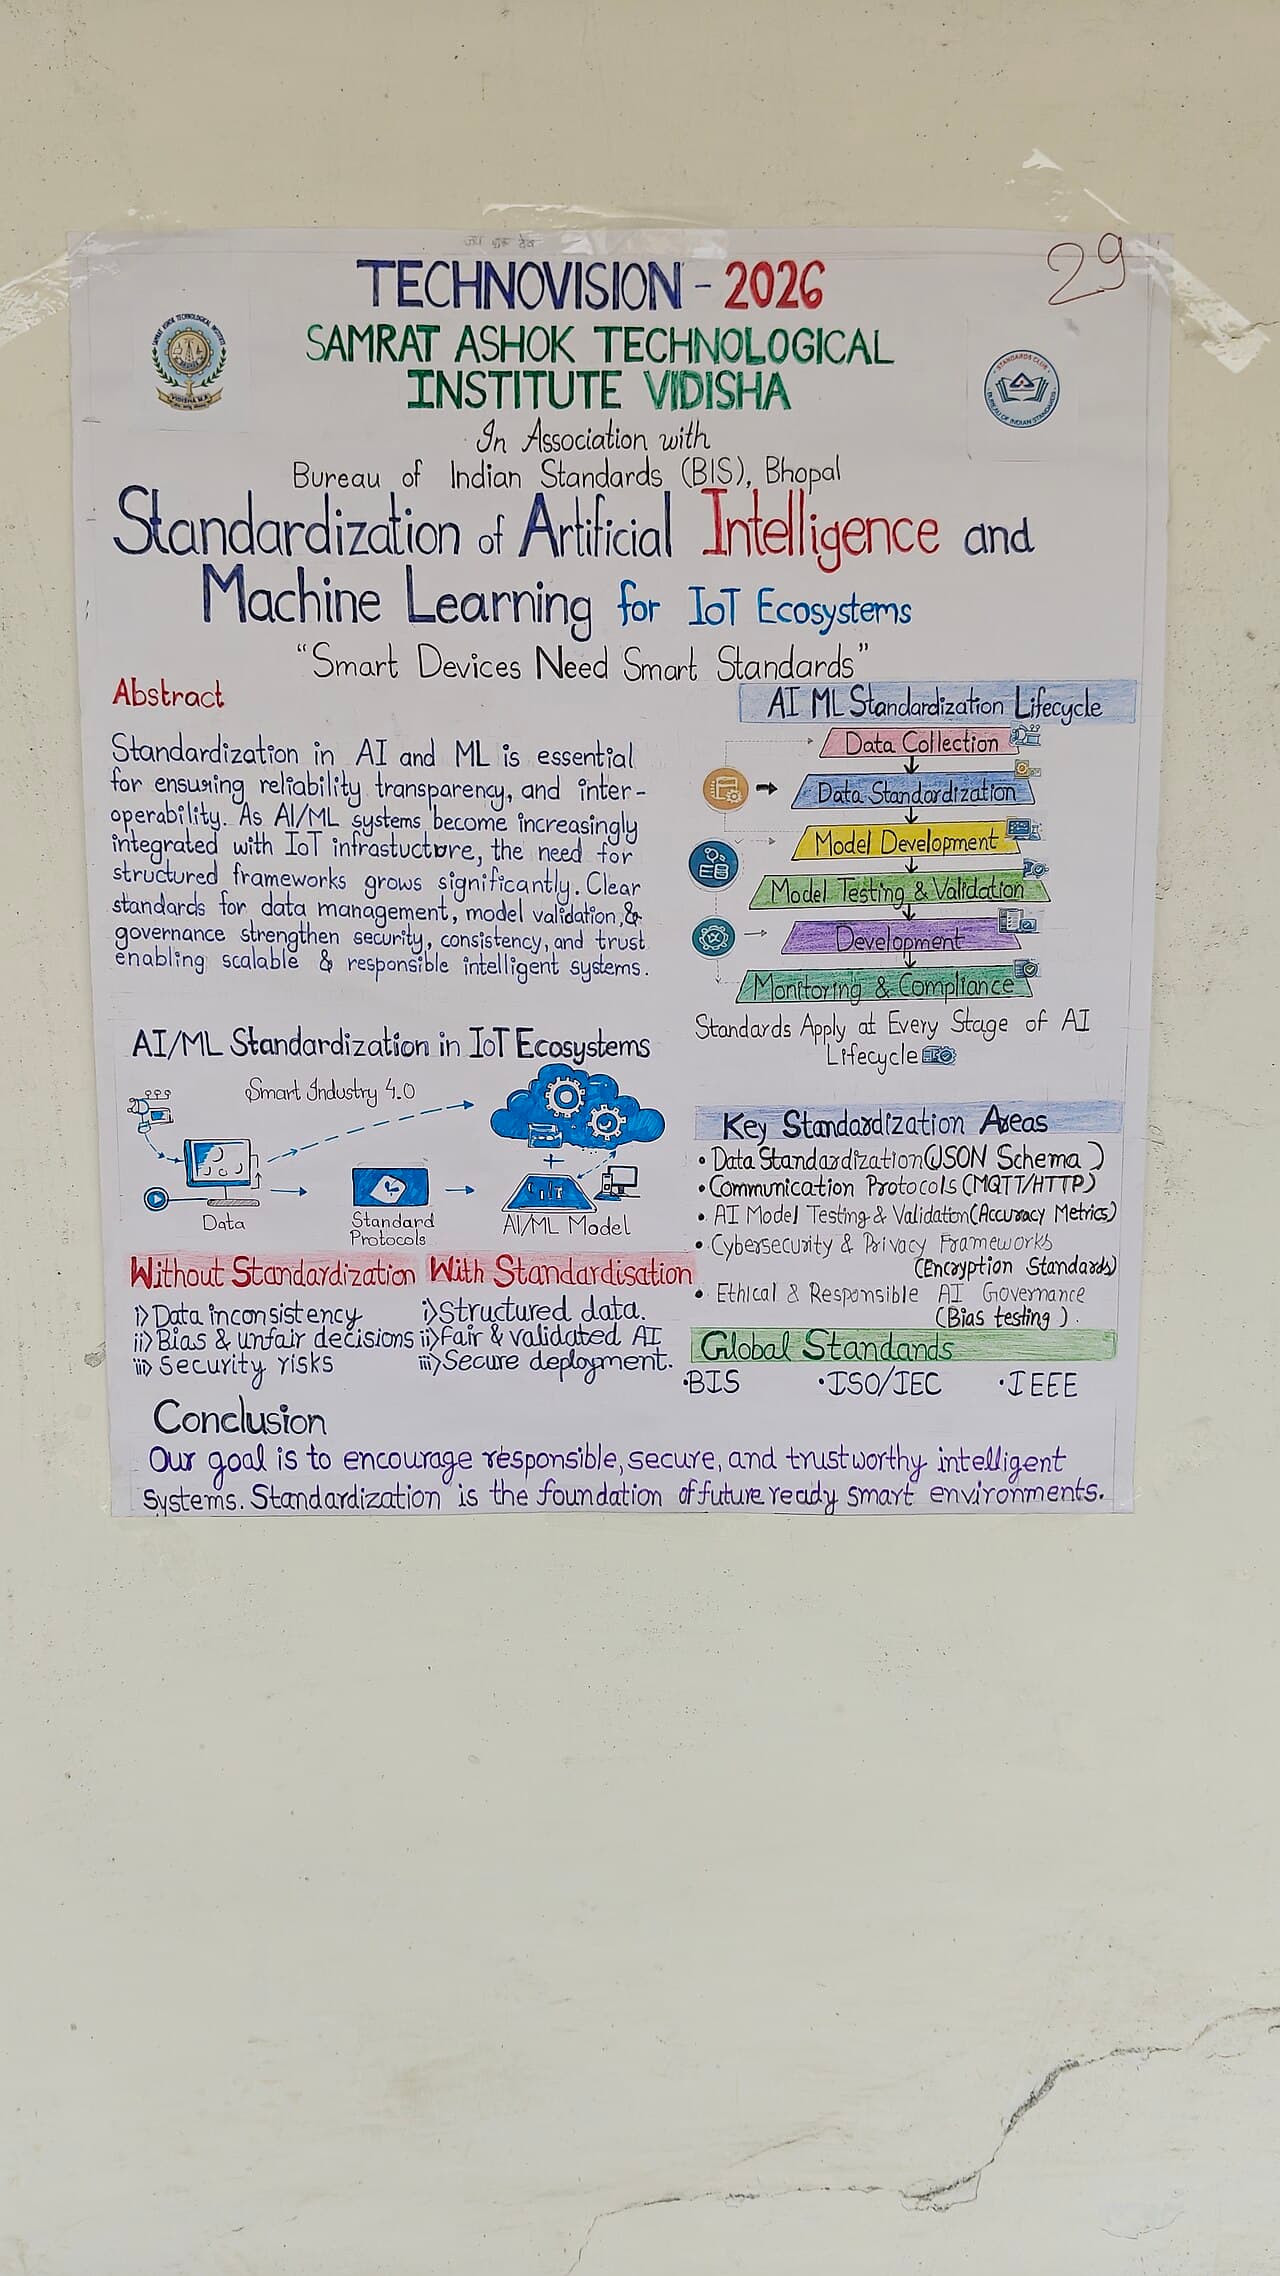 जय गुरु देव
29
TECHNOVISION - 2026
SAMRAT ASHOK TECHNOLOGICAL
INSTITUTE VIDISHA
In Association with
Bureau of Indian Standards (BIS), Bhopal
VIDISHA M.P.
STANDARDS CLUB
BUREAU OF INDIAN STANDARDS
Standardization of Artificial Intelligence and
Machine Learning for IoT Ecosystems
“Smart Devices Need Smart Standards”
Abstract
Standardization in AI and ML is essential
for ensuring reliability transparency, and inter-
operability. As AI/ML systems become increasingly
integrated with IoT infrastucture, the need for
structured frameworks grows significantly. Clear
standards for data management, model validation,&
governance strengthen security, consistency, and trust
enabling scalable & responsible intelligent systems.
AI ML Standardization Lifecycle
Data Collection
Data Standardization
Model Development
Model Testing & Validation
Development
Monitoring & Compliance
Standards Apply at Every Stage of AI
Lifecycle
AI/ML Standardization in IoT Ecosystems
Smart Industry 4.0
Data
Standard
Protocols
AI/ML Model
Key Standardization Areas
• Data Standardization(JSON Schema )
• Communication Protocols (MQTT/HTTP)
• AI Model Testing & Validation(Accuracy Metrics)
• Cybersecurity & Privacy Frameworks
(Encryption Standards)
• Ethical & Responsible AI Governance
(Bias testing ).
Without Standardization
i) Data inconsistency
ii) Bias & unfair decisions
iii) Security risks
With Standardisation
i) Structured data.
ii) Fair & validated AI
iii) Secure deployment.
Global Standands
•BIS •ISO/IEC •IEEE
Conclusion
Our goal is to encourage responsible, secure, and trustworthy intelligent
systems. Standardization is the foundation of future ready smart environments.